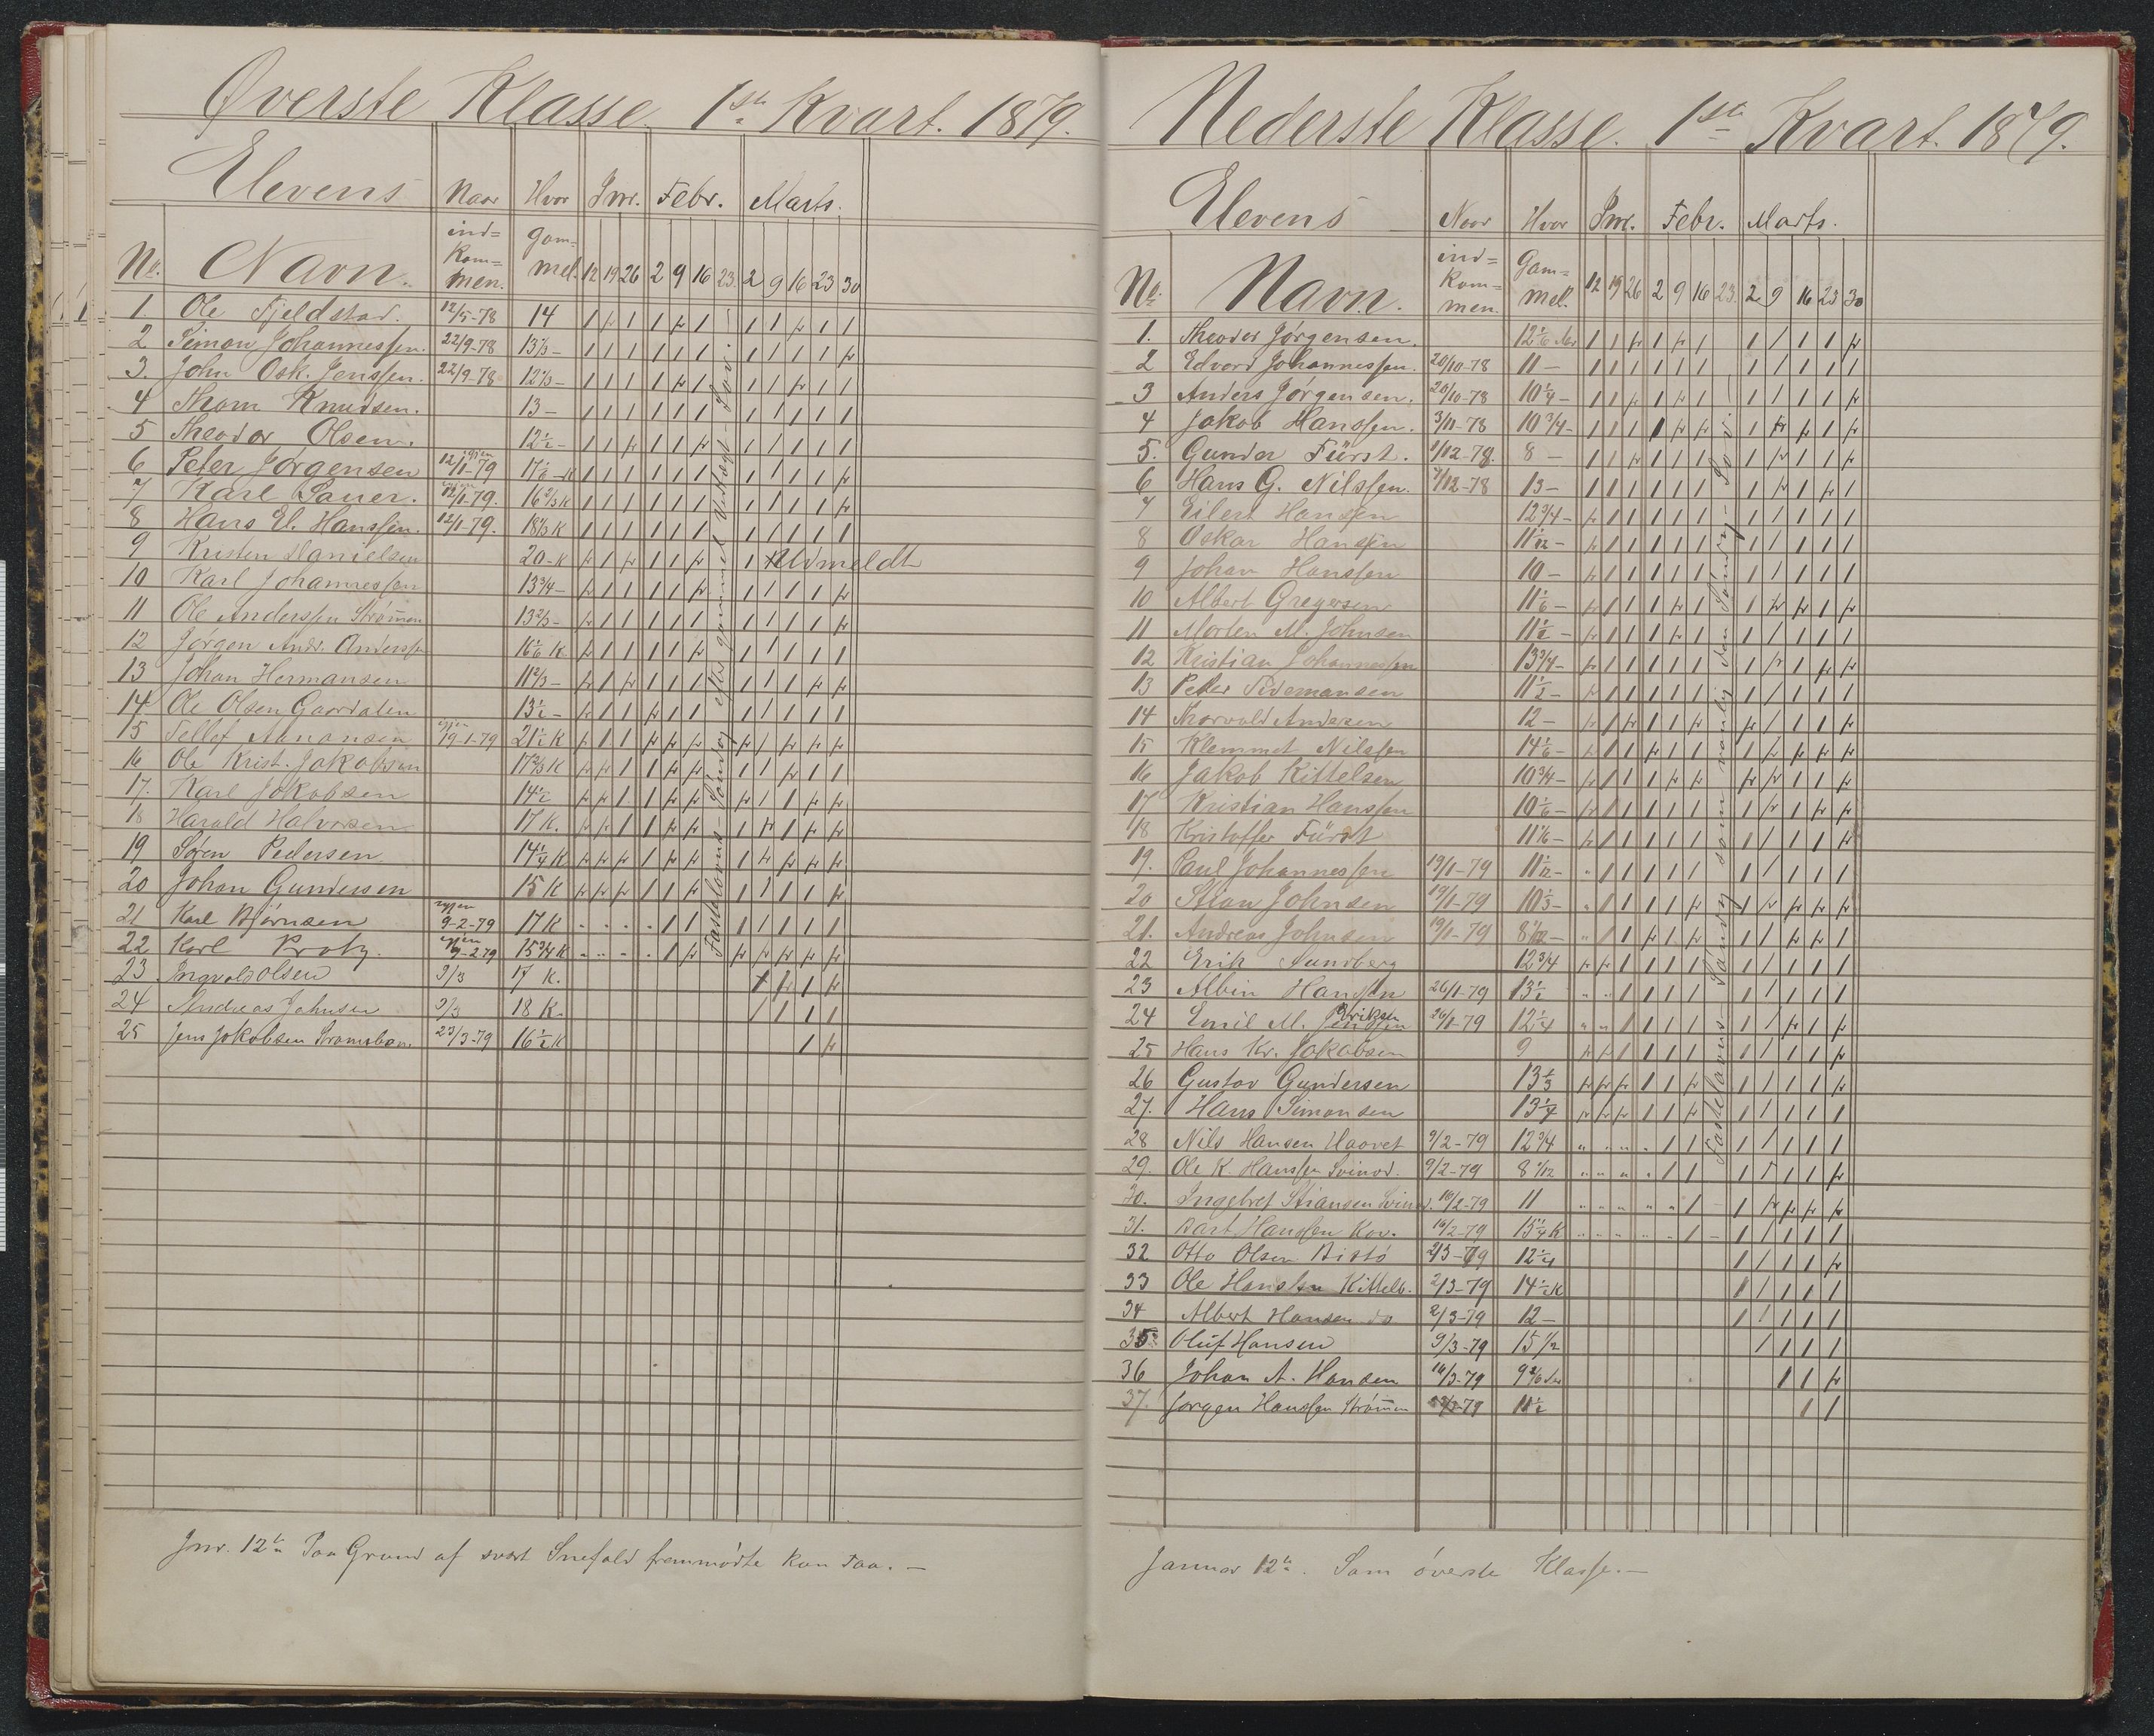 Øverste Klasse 1ste Kvart. 1879.
Elevens Naar Hvor Jnr. Febr. Marts.
No. Navn. ind= kom= men. gam= mel. 12 19 26 2 9 16 23. 2 9 16 23 30
1. Ole Fjeldstad. 12/5-78 14
2 Simon Johannessen. 22/9-78 13 1/3 -
3. John Osk. Jenssen. 22/9-78 12 1/3 -
4 Thom Knudsen. 13 -
5 Theodor Olsen. 12 1/2 -
6 Peter Jørgensen igjen 12/1-79 17 1/6 - K
7 Karl Sauer. igjen 12/1-79. 16 2/3 K
8 Hans El. Hanssen. 12/1-79. 18 1/3 K
9 Kristen Danielsen 20 - K Udmeldt
10 Karl Johannessen 13 3/4 -
11 Ole Anderssen Strømmen 13 2/3 -
12 Jørgen Andr. Anderssen 16 1/6 K
13 Johan Hermansen 11 2/3 -
14 Ole Olsen Gaardalen 13 1/2 -
15 Tellef Aanonsen igjen 19-1-79 21 1/2 K
16 Ole Krist. Jakobsen 17 2/3 K
17. Karl Jakobsen 14 1/2
18 Harald Halvorsen 17 K.
19 Søren Pedersen 14 1/4 K
20 Johan Gundersen 15 K
21 Karl Bjørnsen igjen 9-2-79 17 K
22 Karl igjen 9-2-79 15 3/4 K
23 Ingvald Olsen 9/3 17 K.
24 Andreas Johnsen 9/3 18 K.
25 Jens Jakobsen 23/3-79 16 1/2 K
Fastelavns-Søndag efter gammel
Jnr. 12te Paa Grund af svært Snefald fremmødte kun Faa. -
Nederste Klasse. 1ste Kvart. 1879.
Elevens Naar Hvor Jnr. Febr. Marts.
No. Navn. ind= kom= men. Gam= mel. 12 19 26 2 9 16 23. 2 9 16 23 30
1. Theodor Jørgensen. 12 1/6 Aar
2 Edvard Johannessen. 20/10-78 11 -
3 Anders Jørgensen. 20/10-78 10 1/4 -
4 Jakob Hanssen. 3/11-78 10 3/4 -
5. Gunder Fürst. 1/12-78. 8 -
6 Hans G. Nilssen. 1/12-78 13 -
7 Eilert Hansen 12 3/4 -
8 Oskar Hansen 11 1/12 -
9 Johan Hanssen 10 -
10 Albert Gregersen 11 1/6 -
11 Morten M. Johnsen 11 1/2 -
12 Kristian Johannessen 13 3/4 -
13 Peder Tidemansen 11 1/2 -
14 Thorvald Andersen 12 -
15 Klemmet Nilssen 14 1/6 -
16 Jakob Kittelsen 10 3/4 -
17 Kristian Hanssen 10 1/6 -
18 Kristoffer Fürst 11 1/6 -
19. Paul Johannessen 19/1-79 11 1/2 -
20 Stian Johnsen 19/1-79 10 1/3 -
21. Andreas Johnsen 19/1-79 8 1/12 -
22 Erik Sundberg 12 3/4
23 Albin Hanssen 26/1-79 13 1/2
24 Emil M. Eriksen 26/1-79 12 1/4
25 Hans Kr. Jakobsen 9
26 Gustav Gundersen 13 1/3
27. Hans Simonsen 13 1/4
28 Nils Hansen Haavet 9/2-79 12 3/4
29. Ole K. Hanssen Svinod. 9/2-79 8 1/12
30. Ingebret Stiansen 16/2-79 11
31. Bart Hanssen Kov. 16/2-79 15 1/4 K
32 Otto Olsen Bistø 2/3-79 12 1/4
33 Ole Hanssen Kittelb. 2/3-79 14 1/2 K
34 Albert Hansen do 2/3-79 12 -
35 Oluf Hansen 9/3-79 15 1/2
36 Johan A. Hansen 16/3-79
37. Jørgen Hanssen Strømmen 23/3-79 11 1/2
Fastelavns-Søndag som vanlig den Søndag
Januar 12te. Som øverste Klasse. -